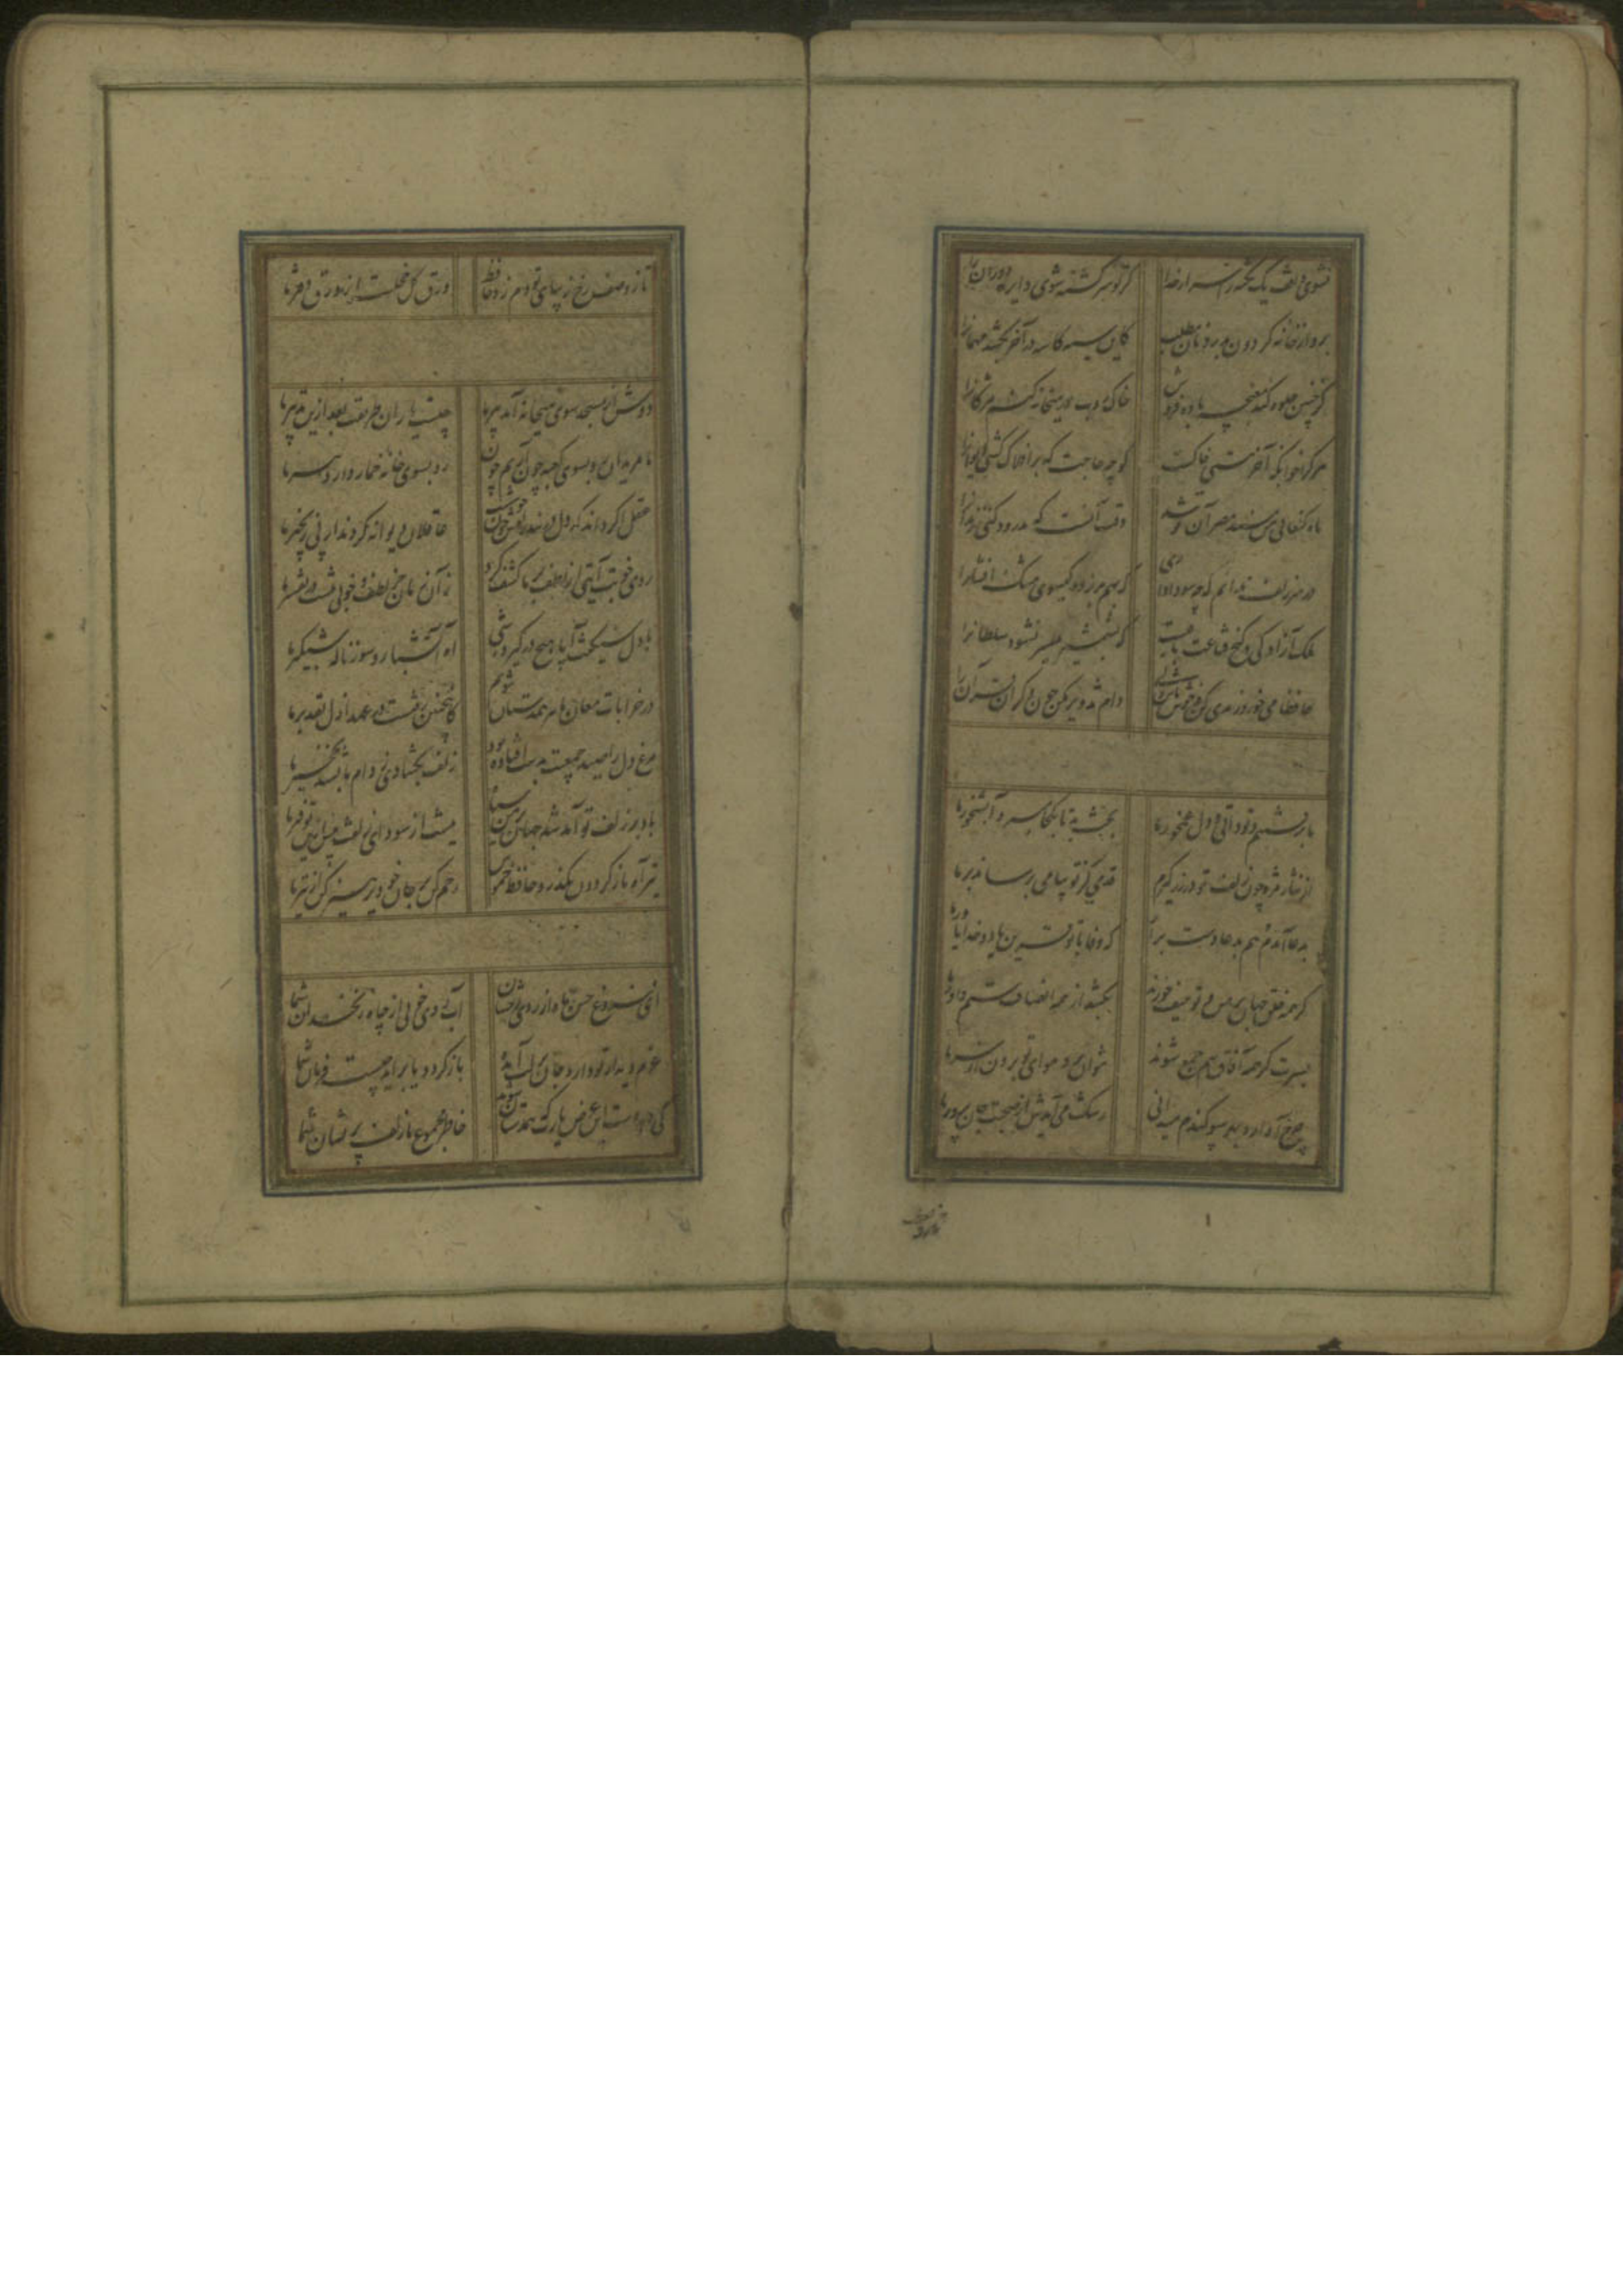 نشوی واقف یک نکته ز اسرار خدا کر تو سرکشته شوی دایره دوران را
برو از خانه کردون بدر و نان مطلب کاین سیه کاسه در آخر بکشد مهمانرا
کر چنین جلوه کند مغبچه باده فروش خاک روب در میخانه کنم مژکانرا
هر کرا خوابکه آخر مشتی خاکست کو چه حاجت که بر افلاک کشی ایوانرا
ماه کنعانی من مسند مصر آن تو شد وقت آنست که بدرود کنی زندانرا
در سر زلف ندانم که چه سودا داری که بهم بر زده کیسوی مشک افشانرا
ملک آزادکی و کنج قناعت که بشمشیر میسر نشود سلطانرا
حافظا می خور و رندی کن و خوش باش ولی دام تزویر مکن چون دکران قرآن را
ما برفتیم و تو دانی و دل غمخور ما بخت بد تا بکجا میبرد آبشخور ما
از نثار مژه چون زلف تو در زر کیرم کز تو پیامی برساند بر ما
بدعا آمدم هم بدعا دست برآر که وفا با تو قرین باد و خدا یاور ما
کر همه خلق جهان بر من و تو حیف خورند بکشد از همه انصاف ستم داور ما
بسرت کر همه آفاق بهم جمع شوند نتوان برد هوای تو برون از سر ما
چرخ آواره بهر سو کندم میدانی رشک می آیدش از صحبت جان پرور ما
تا ز وصف
تا ز وصف رخ زیبای تو دم زد حافظ ورق کل خجلست از ورق دفتر ما
دوش از مسجد سوی میخانه آمد پیر ما چیست یاران طریقت بعد ازین تدبیر ما
ما مریدان رو بسوی کعبه چون آریم چون رو بسوی خانه خمار دارد پیر ما
عقل اکر داند که دل در بند زلفش چون خوشست عاقلان دیوانه کردند از پی زنجیر ما
روی خوبت آیتی از لطف بر ما کشف کرد زآن زمان جز لطف و خوبی نیست در تفسیر ما
با دل سنکینت آیا هیچ در کیرد شبی آه آتشبار و سوز ناله شبکیر ما
در خرابات مغان ما نیز همدستان شویم کاینچنین رفتست در عهد ازل تقدیر ما
مرغ دل را صید جمعیت بدست افتاده بود زلف بکشادی ز دام ما بشد نخجیر ما
باد بر زلف تو آمد شد جهان بر من سیاه نیست از سودای زلفت بیش ازین توفیر ما
تیر آه ما ز کردون بکذرد حافظ خموش رحم کن بر جان خود پرهیز کن از تیر ما
ای فروغ حسن ماه از روی رخشان شما آب روی خوبی از چاه زنخدان شما
عزم دیدار تو دارد جان بر لب آمده باز کردد یا برآید چیست فرمان شما
کی دهد دست این غرض یارب که همدستان شوند خاطر مجموع ما زلف پریشان شما